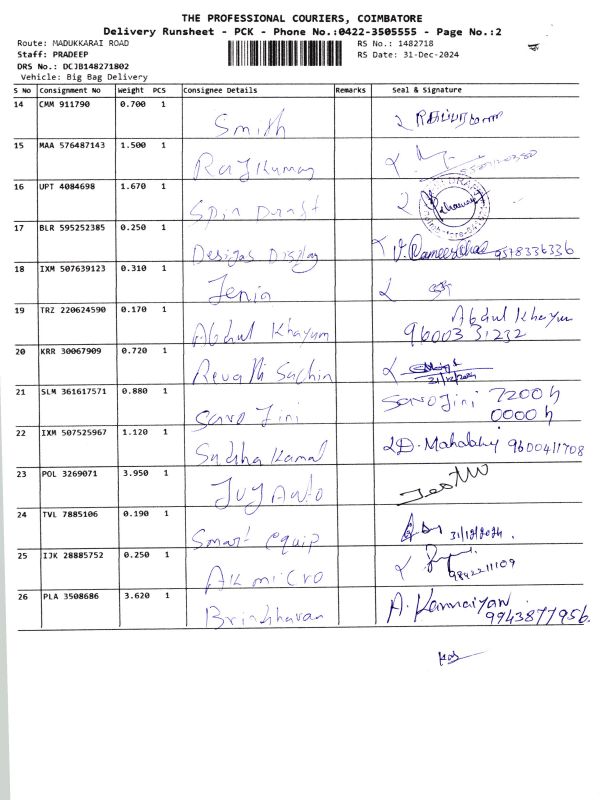 THE PROFESSIONAL COURIERS, COIMBATORE
Delivery Runsheet - PCK - Phone No.:0422-3505555 - Page No.:2
Route: MADUKKARAI ROAD RS No.: 1482718
Staff: PRADEEP RS Date: 31-Dec-2024
DRS No.: DCJB148271802
Vehicle: Big Bag Delivery
S No Consignment No Weight PCS Consignee Details Remarks Seal & Signature
14 CMM 911790 0.700 1 Smith
15 MAA 576487143 1.500 1 Rajkumar
16 UPT 4084698 1.670 1 Spin
17 BLR 595252385 0.250 1 Desigas Display 9578336336
18 IXM 507639123 0.310 1 Jenia
19 TRZ 220624590 0.170 1 Abdul Khayum Abdul Khayum
96003 31232
20 KRR 30067909 0.720 1 Revathi Sachin
31/12/2024
21 SLM 361617571 0.880 1 Sarojini Sarojini 7200 h
0000 h
22 IXM 507525967 1.120 1 Sudha Kamal D. Mahalaky 9600411708
23 POL 3269071 3.950 1 JUJ Auto
24 TVL 7885106 0.190 1 Smart equip 31/12/2024.
25 IJK 28885752 0.250 1 AK micro
9842211109
26 PLA 3508686 3.620 1 Brindhavan A. Kannaiyan
9943877956.